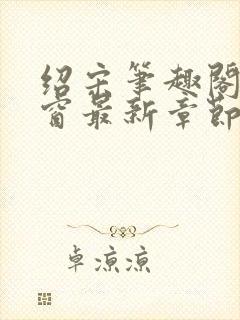 绍宋笔趣阁
窗最新章节
卓凉凉